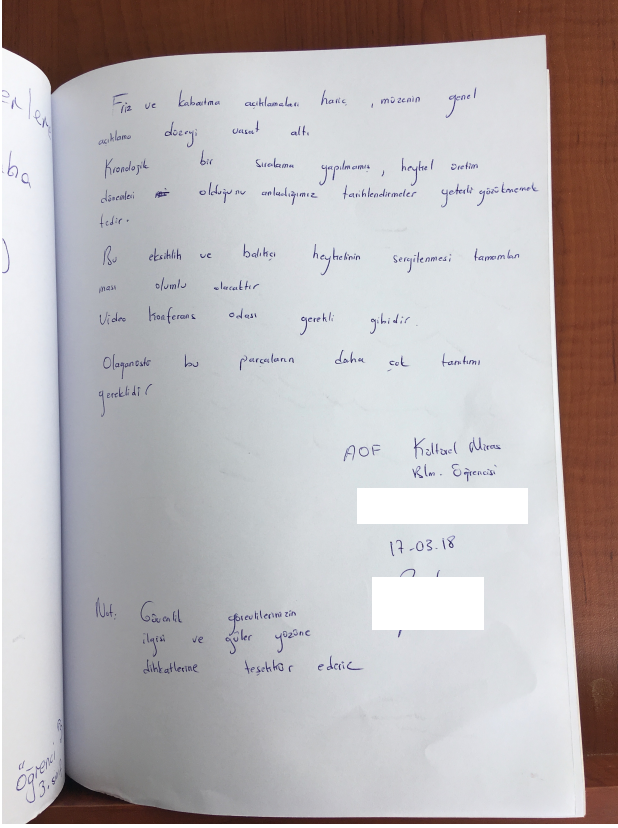 erlere
aba
)
Friz ve kabartma açıklamaları hariç , müzenin genel
açıklama düzeyi vasat altı
Kronolojik bir sıralama yapılmamış , heykel üretim
dönemleri olduğunu anladığımız tarihlendirmeler yeterli gözükmemek
tedir.
Bu eksiklik ve balıkçı heykelinin sergilenmesi tamamlan
ması olumlu olacaktır
Video Konferans odası gerekli gibidir.
Olağanüstü bu parçaların daha çok tanıtımı
gereklidir
AÖF Kültürel Miras
Blm. Öğrencisi
17-03-18
Not: Güvenlik görevlilerinizin
ilgisi ve güler yüzüne
dikkatlerine teşekkür ederiz
Öğrenci
3. sınıf